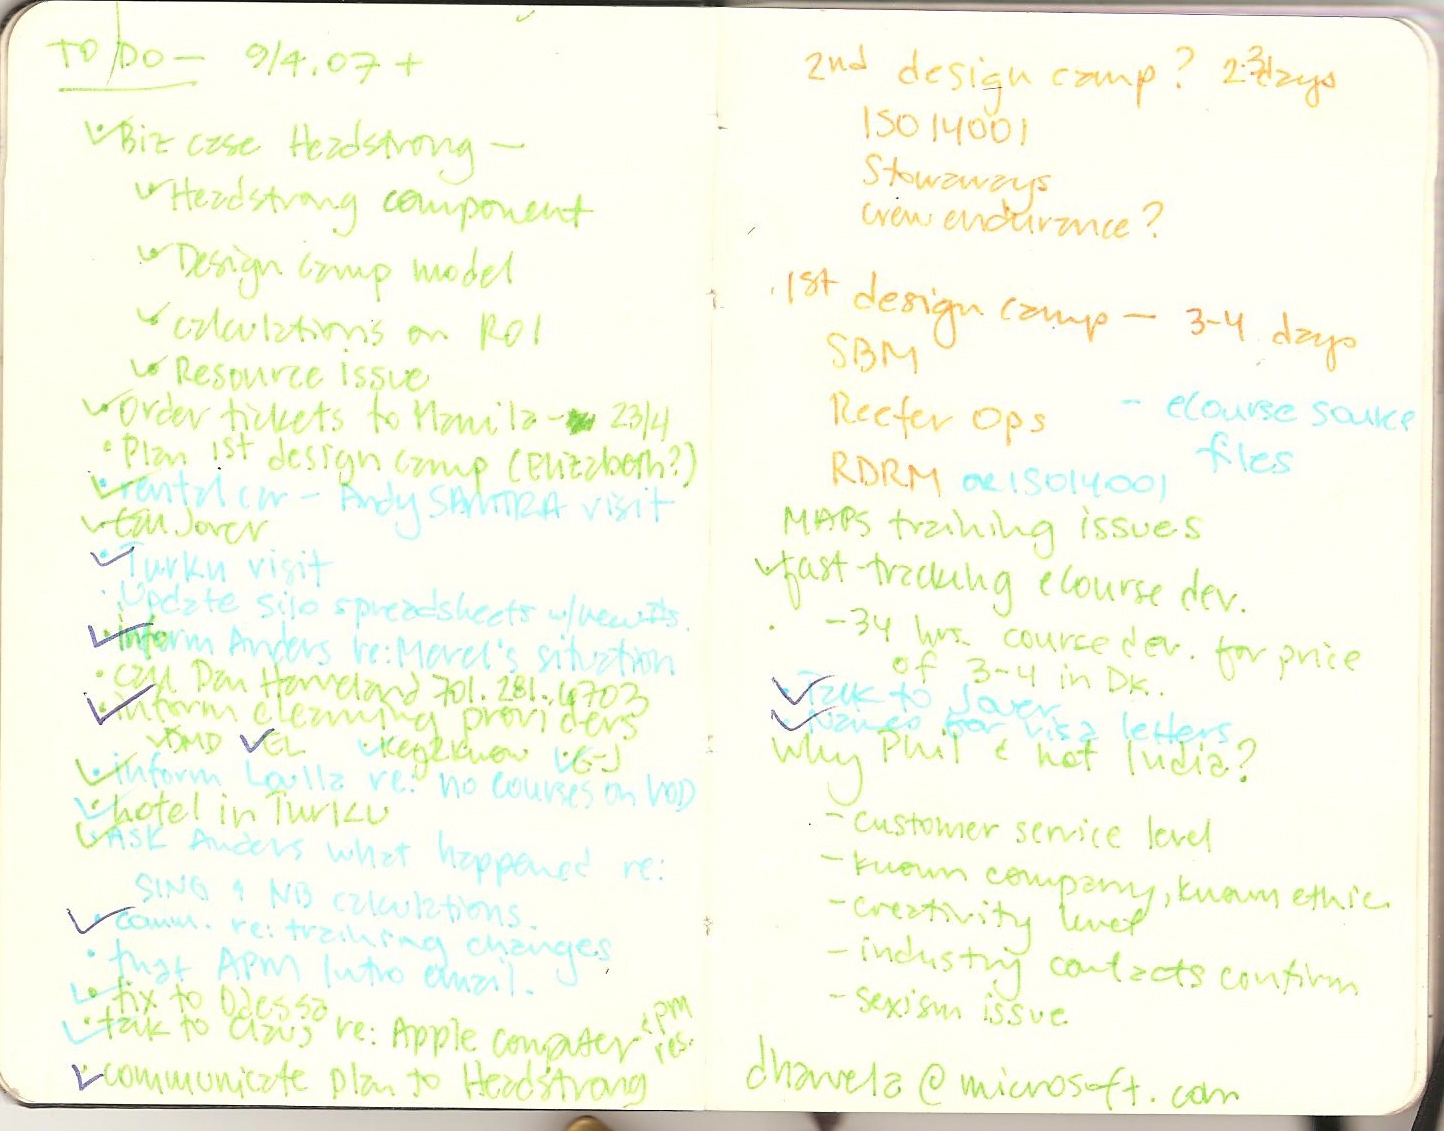 TO DO — 9/4.07 +
Biz case Headstrong —
Headstrong component
Design camp model
calculations on ROI
Resource issue
Order tickets to Manila - 23/4
Plan 1st design camp (Elizabeth?)
rental car - Andy SANTRA visit
call Jover
Turku visit
Update silo spreadsheets w/new
inform Anders re: Merel's situation
call Dan Haveland 701.281.6703
inform elearning providers
DMD EL Keg2Know G-J
inform Loulla re: no courses on VOD
hotel in Turku
Ask Anders what happened re:
SING & NB calculations.
comm. re: training changes
that APM Intro email.
fix to Odessa
talk to Claus re: Apple computer
communicate plan to Headstrong
2nd design camp? days
ISO 14001
Stowaways
crew endurance?
1st design camp — 3-4 days
SBM
Reefer Ops - ecourse source
files
RDRM or ISO14001
MAPS training issues
fast-tracking ecourse dev.
- 34 hrs. course dev. for price
of 3-4 in DK.
Talk to Jover
Names for visa letters
Why Phil & not India?
- customer service level
- known company, known ethic
- creativity level
- industry contacts confirm
- sexism issue
dhavela@microsoft.com